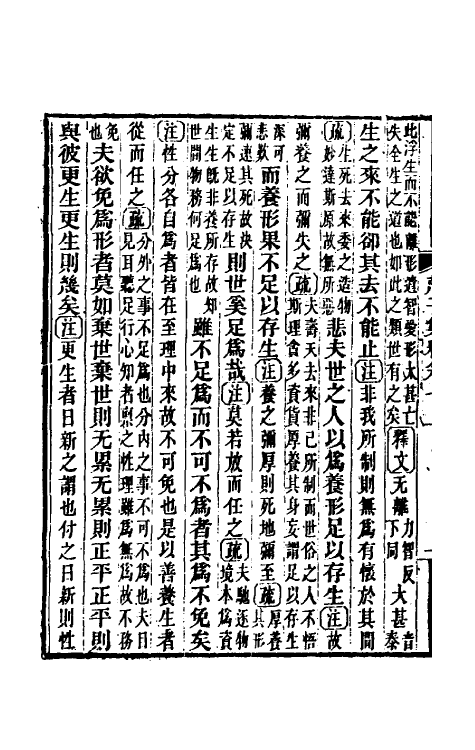 此浮生而不能離形遺智愛形太甚亡
失全生之道也如此之類世有之矣
釋文 无離 力智反
下同
大甚 音
泰
生之來不能卻其去不能止注非我所制則無爲有懷於其間
疏 生死去來委之造物
妙達斯原故無所惡
悲夫世之人以爲養形足以存生注故
彌養之而彌失之疏 夫壽夭去來非己所制而世俗之人不悟
斯理貪多資貨厚養其身妄謂足以存生
深可
悲歎
而養形果不足以存生注養之彌厚則死地彌至疏 厚養
其形
彌速其死故決
定不足以存生
則世奚足爲哉注莫若放而任之疏 夫馳逐物
境本爲資
生生旣非養所存故知
世間物務何足爲也
雖不足爲而不可不爲者其爲不免矣
注性分各自爲者皆在至理中來故不可免也是以善養生者
從而任之疏 分外之事不足爲也分內之事不可不爲也夫目
見耳聽足行心知者稟之性理雖爲無爲故不務
免
也
夫欲免爲形者莫如棄世棄世則无累无累則正平正平則
與彼更生更生則幾矣注更生者日新之謂也付之日新則性